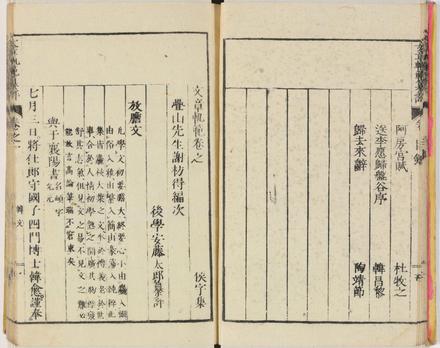 阿房宮賦 杜牧之
送李愿歸盤谷序 韓昌黎
歸去來辭 陶靖節
文章軌範卷之一 侯字集
疊山先生謝枋得編次
後學安藤太郎纂評
放膽文
凡學文初要膽大終要心小由麤入細
由俗入雅由繁入簡由豪蕩入純粹此
集皆麤枝大葉之文本於禮義老於世
事合於人情初學熟之開廣其胸襟發
舒其志氣但見文之易不見文之難必
能放言高論筆端不窘束矣
與于襄陽書 名頔字
允元
七月三日將仕郎守國子四門博士韓愈謹奉
韓文